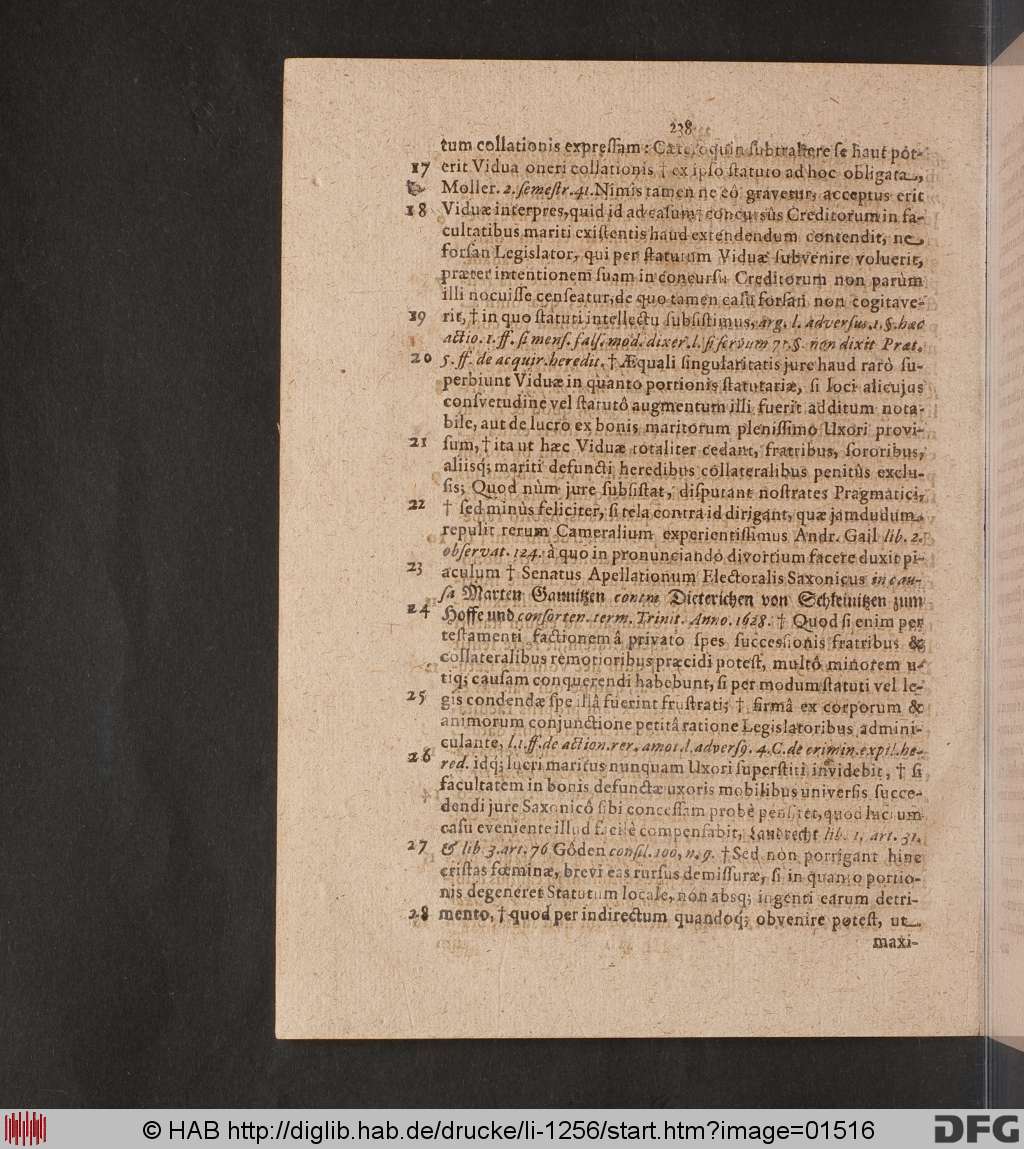 238
tum collationis expressam: Cæteroquin subtrahere se haut pot-
17 erit Vidua oneri collationis † ex ipso statuto ad hoc obligata,
Moller. 2. semestr. 41. Nimis tamen ne eò gravetur, acceptus erit
18 Viduæ interpres, quid id ad casum † concursûs Creditorum in fa-
cultatibus mariti existentis haud extendendum contendit, ne
forsan Legislator, qui per statutum Viduæ subvenire voluerit,
præter intentionem suam in concursu Creditorum non parùm
illi nocuisse censeatur, de quo tamen casu forsan non cogitave-
19 rit, † in quo statuti intellectu subsistimus, arg. l. adversus. 1. §. hæc
actio. 1. ff. si mens. fals. mod. dixer. l. si servum 71. §. non dixit Præt.
20 5. ff. de acquir. heredit. † Æquali singularitatis jure haud rarò su-
perbiunt Viduæ in quanto portionis statutariæ, si loci alicujus
consvetudine vel statutô augmentum illi fuerit additum nota-
bile, aut de lucro ex bonis maritorum plenissimo Uxori provi-
21 sum, † ita ut hæc Viduæ totaliter cedant, fratribus, sororibus,
aliisq; mariti defuncti heredibus collateralibus penitùs exclu-
sis; Quod nùm jure subsistat, disputant nostrates Pragmatici,
22 † sed minùs feliciter, si tela contra id dirigant, quæ jamdudum
repulit rerum Cameralium experientissimus Andr. Gail lib. 2.
observat. 124. à quo in pronunciando divortium facere duxit pi-
23 aculum † Senatus Apellationum Electoralis Saxonicus in cau-
sa Marten Gaunitzen contra Dieterichen von Schleinitzen zum
24 Hoffe und consorten. term. Trinit. Anno. 1628. † Quod si enim per
testamenti factionem â privato spes successionis fratribus &
collateralibus remotioribus præcidi potest, multô minorem u-
tiq; causam conquerendi habebunt, si per modum statuti vel le-
25 gis condendæ spe illâ fuerint frustrati; † firmâ ex corporum &
animorum conjunctione petitâ ratione Legislatoribus admini-
culante, l. 1. ff. de action. rer. amot. l. adversq. 4. C. de crimin. expil. he-
26 red. idq; lucri maritus nunquam Uxori superstiti invidebit, † si
facultatem in bonis defunctæ uxoris mobilibus universis succe-
dendi jure Saxonicô sibi concessam probè pensitet, quod lucrum
casu eveniente illud facilè compensabit, Landrecht lib. 1, art. 31.
27 & lib 3. art. 76 Gôden consil. 100, n. 9. † Sed non porrigant hinc
cristas fœminæ, brevi eas rursus demissuræ, si in quanto portio-
nis degeneret Statutum locale, non absq; ingenti earum detri-
28 mento, † quod per indirectum quandoq; obvenire potest, ut
maxi-
© HAB http://diglib.hab.de/drucke/li-1256/start.htm?image=01516
DFG